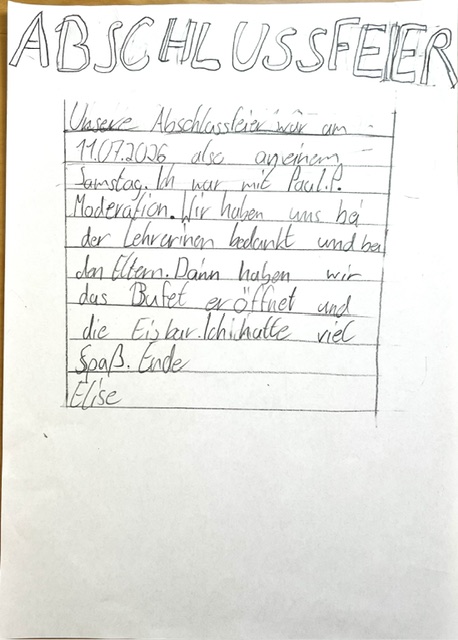 ABSCHLUSSFEIER
Unsere Abschlussfeier war am
11.07.2026 also an einem
Samstag. Ich war mit Paul.P.
Moderation. Wir haben uns bei
der Lehrerinen bedankt und bei
den Eltern. Dann haben wir
das Bufet eröffnet und
die Eisbar. Ich hatte viel
Spaß. Ende
Elise